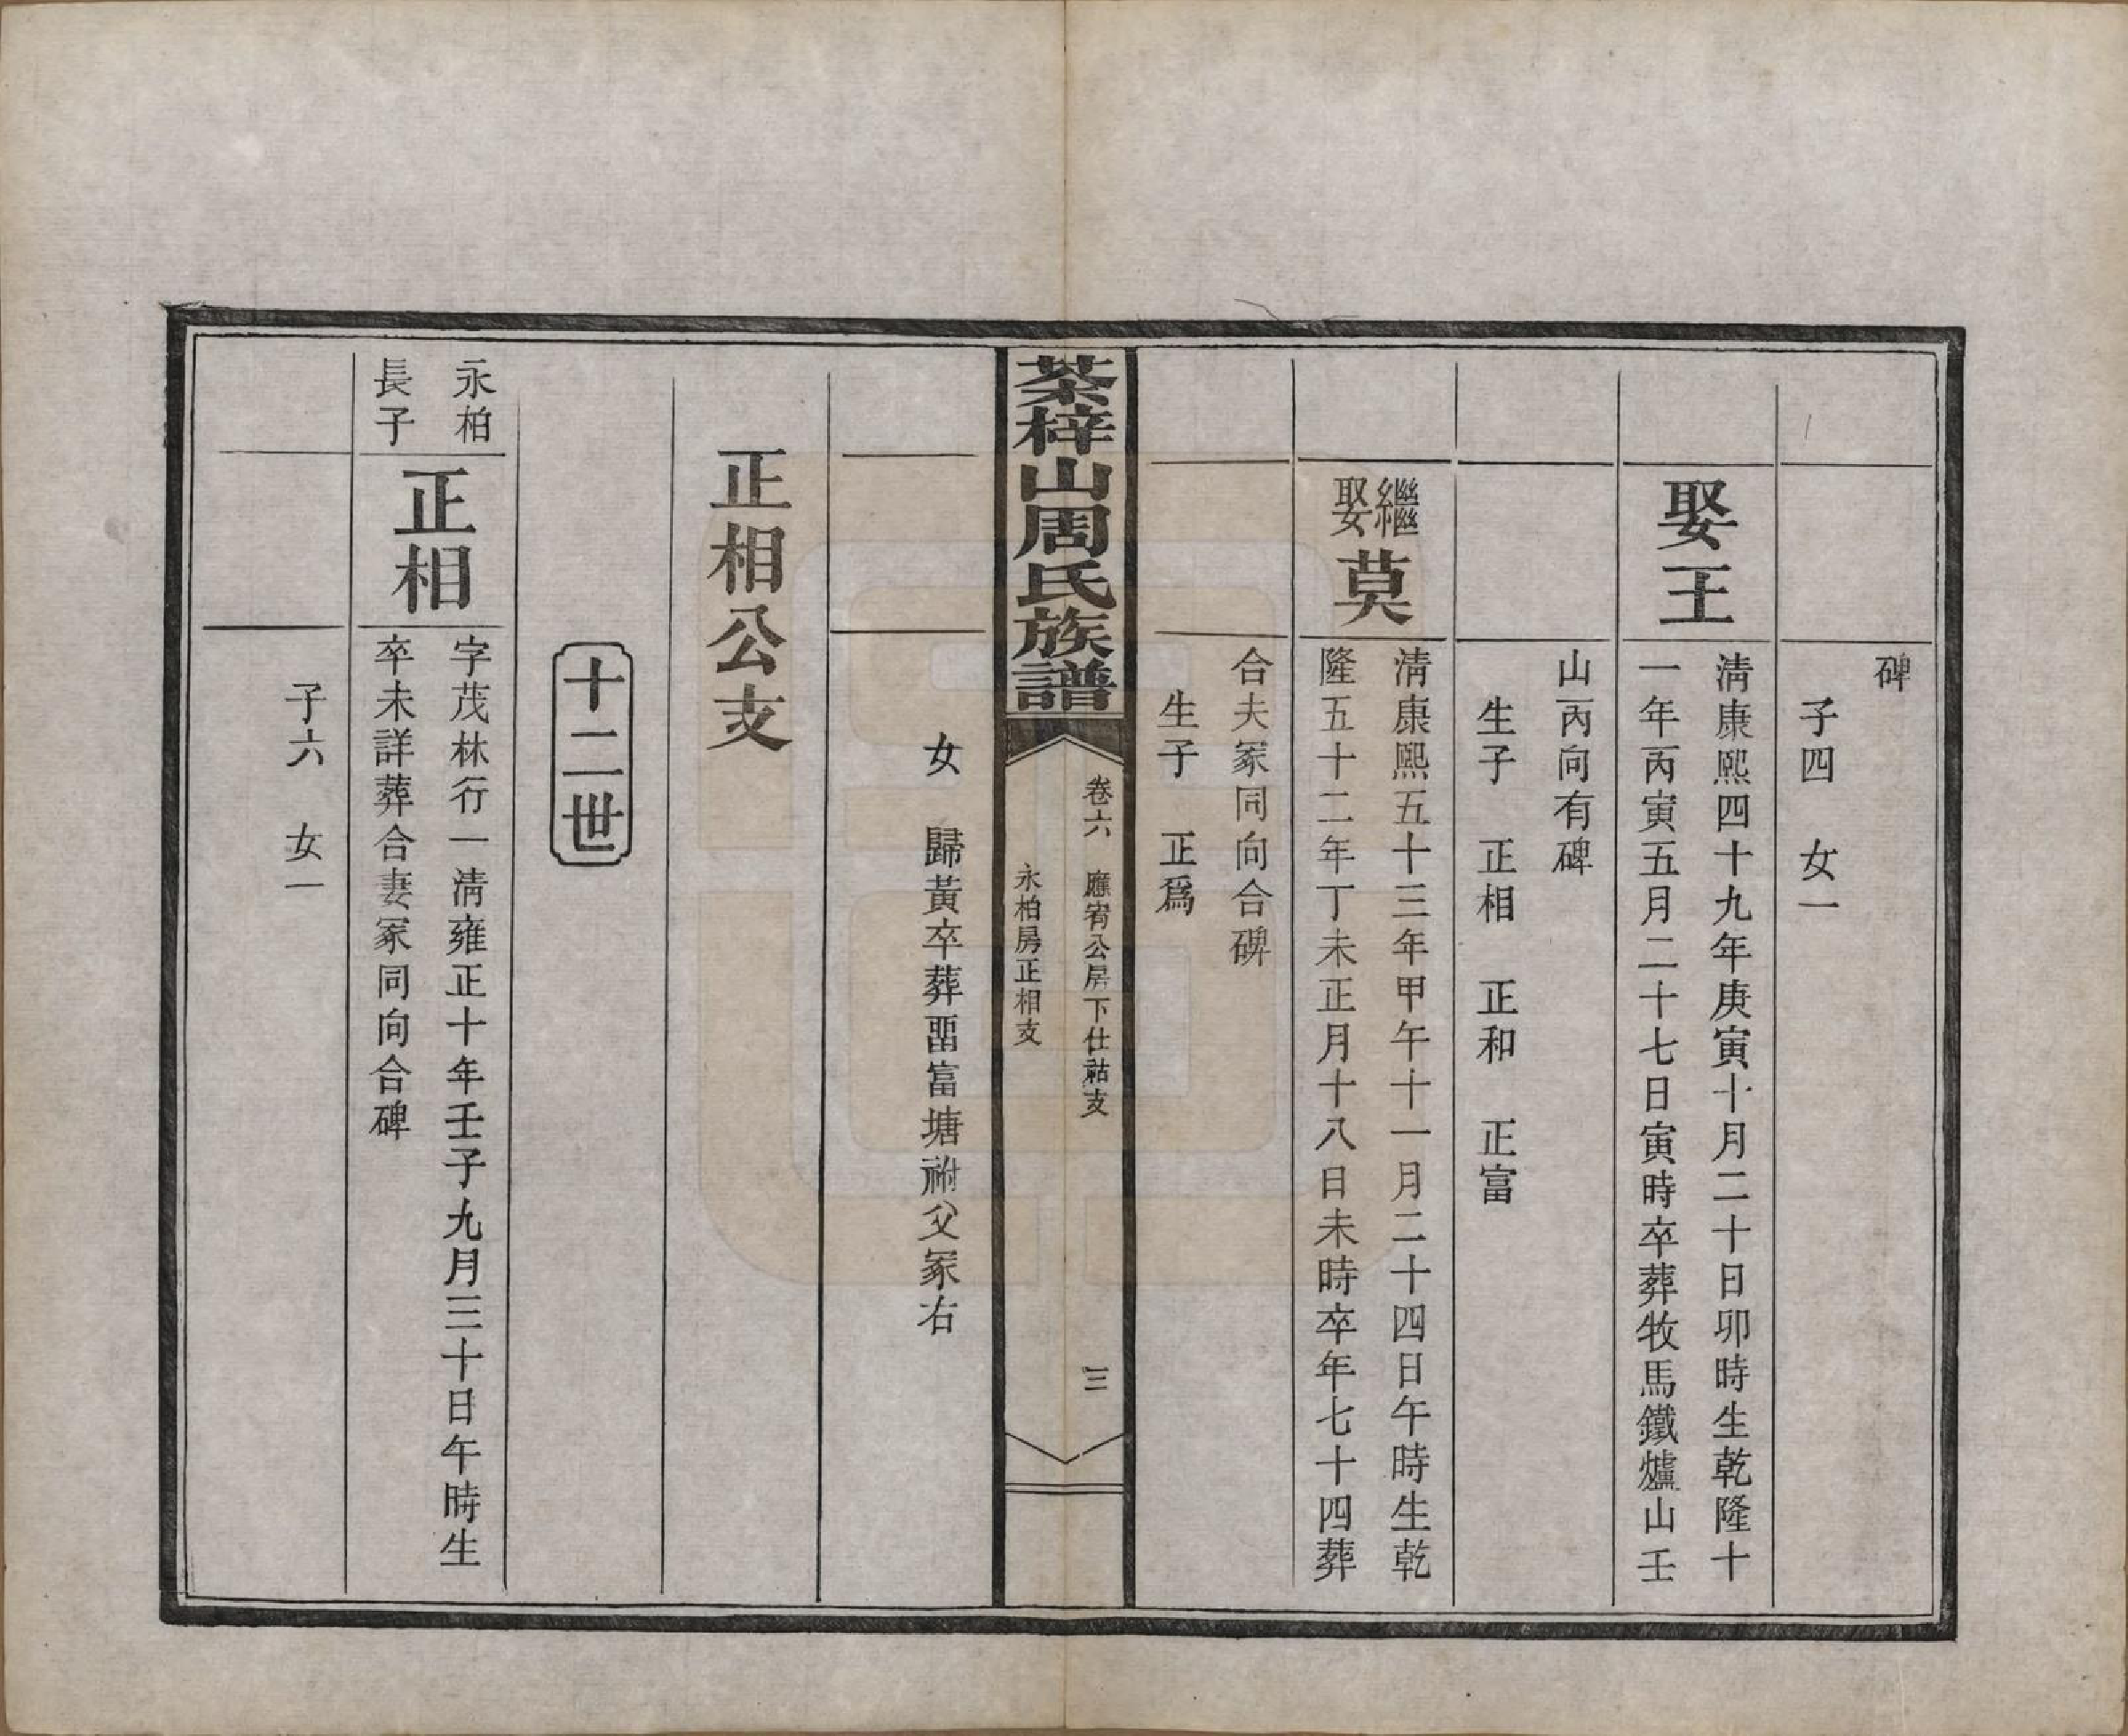 碑
子四　女一
娶王
淸康熙四十九年庚寅十月二十日卯時生乾隆十
一年丙寅五月二十七日寅時卒葬牧馬鐵爐山壬
山丙向有碑
生子　正相　正和　正富
繼娶莫
淸康熙五十三年甲午十一月二十四日午時生乾
隆五十二年丁未正月十八日未時卒年七十四葬
合夫冢同向合碑
生子　正爲
茶梓山周氏族譜
卷六　應宥公房下仕祜支
永柏房正相支
三
女　歸黃卒葬畱富塘祔父冢右
正相公支
十二世
永柏
長子
正相
字茂林行一淸雍正十年壬子九月三十日午時生
卒未詳葬合妻冢同向合碑
子六　女一